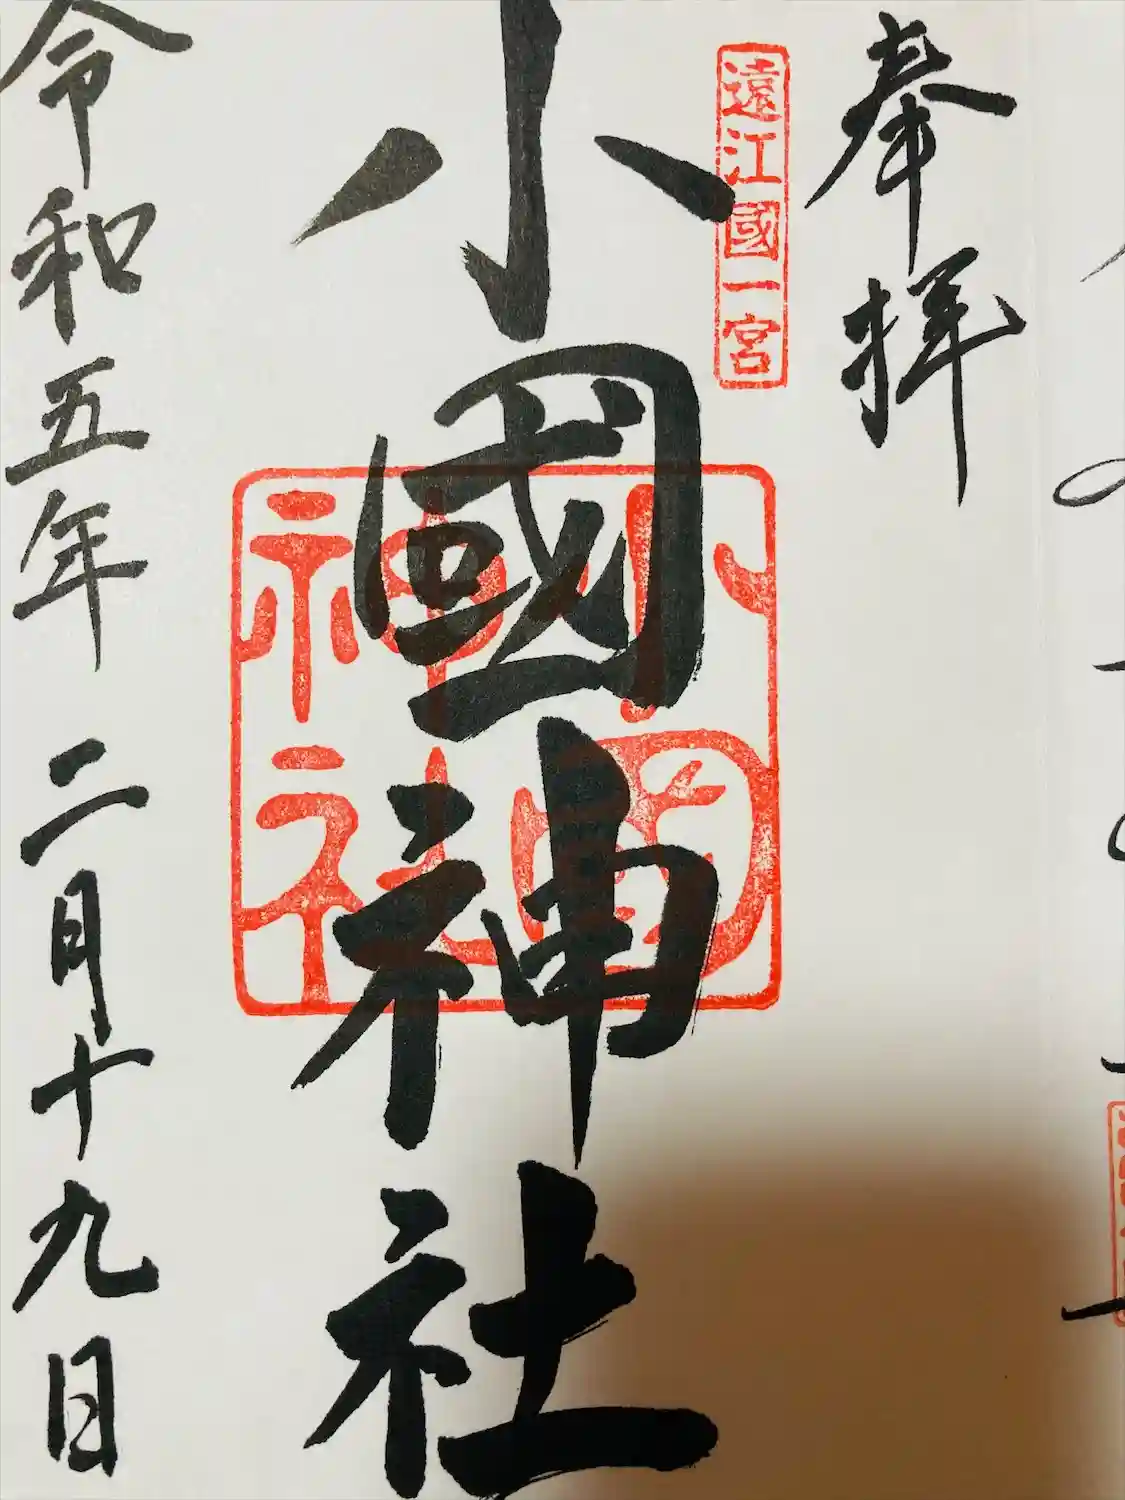 奉拝
遠江國一宮
小國神社
小國
神社
令和五年二月十九日